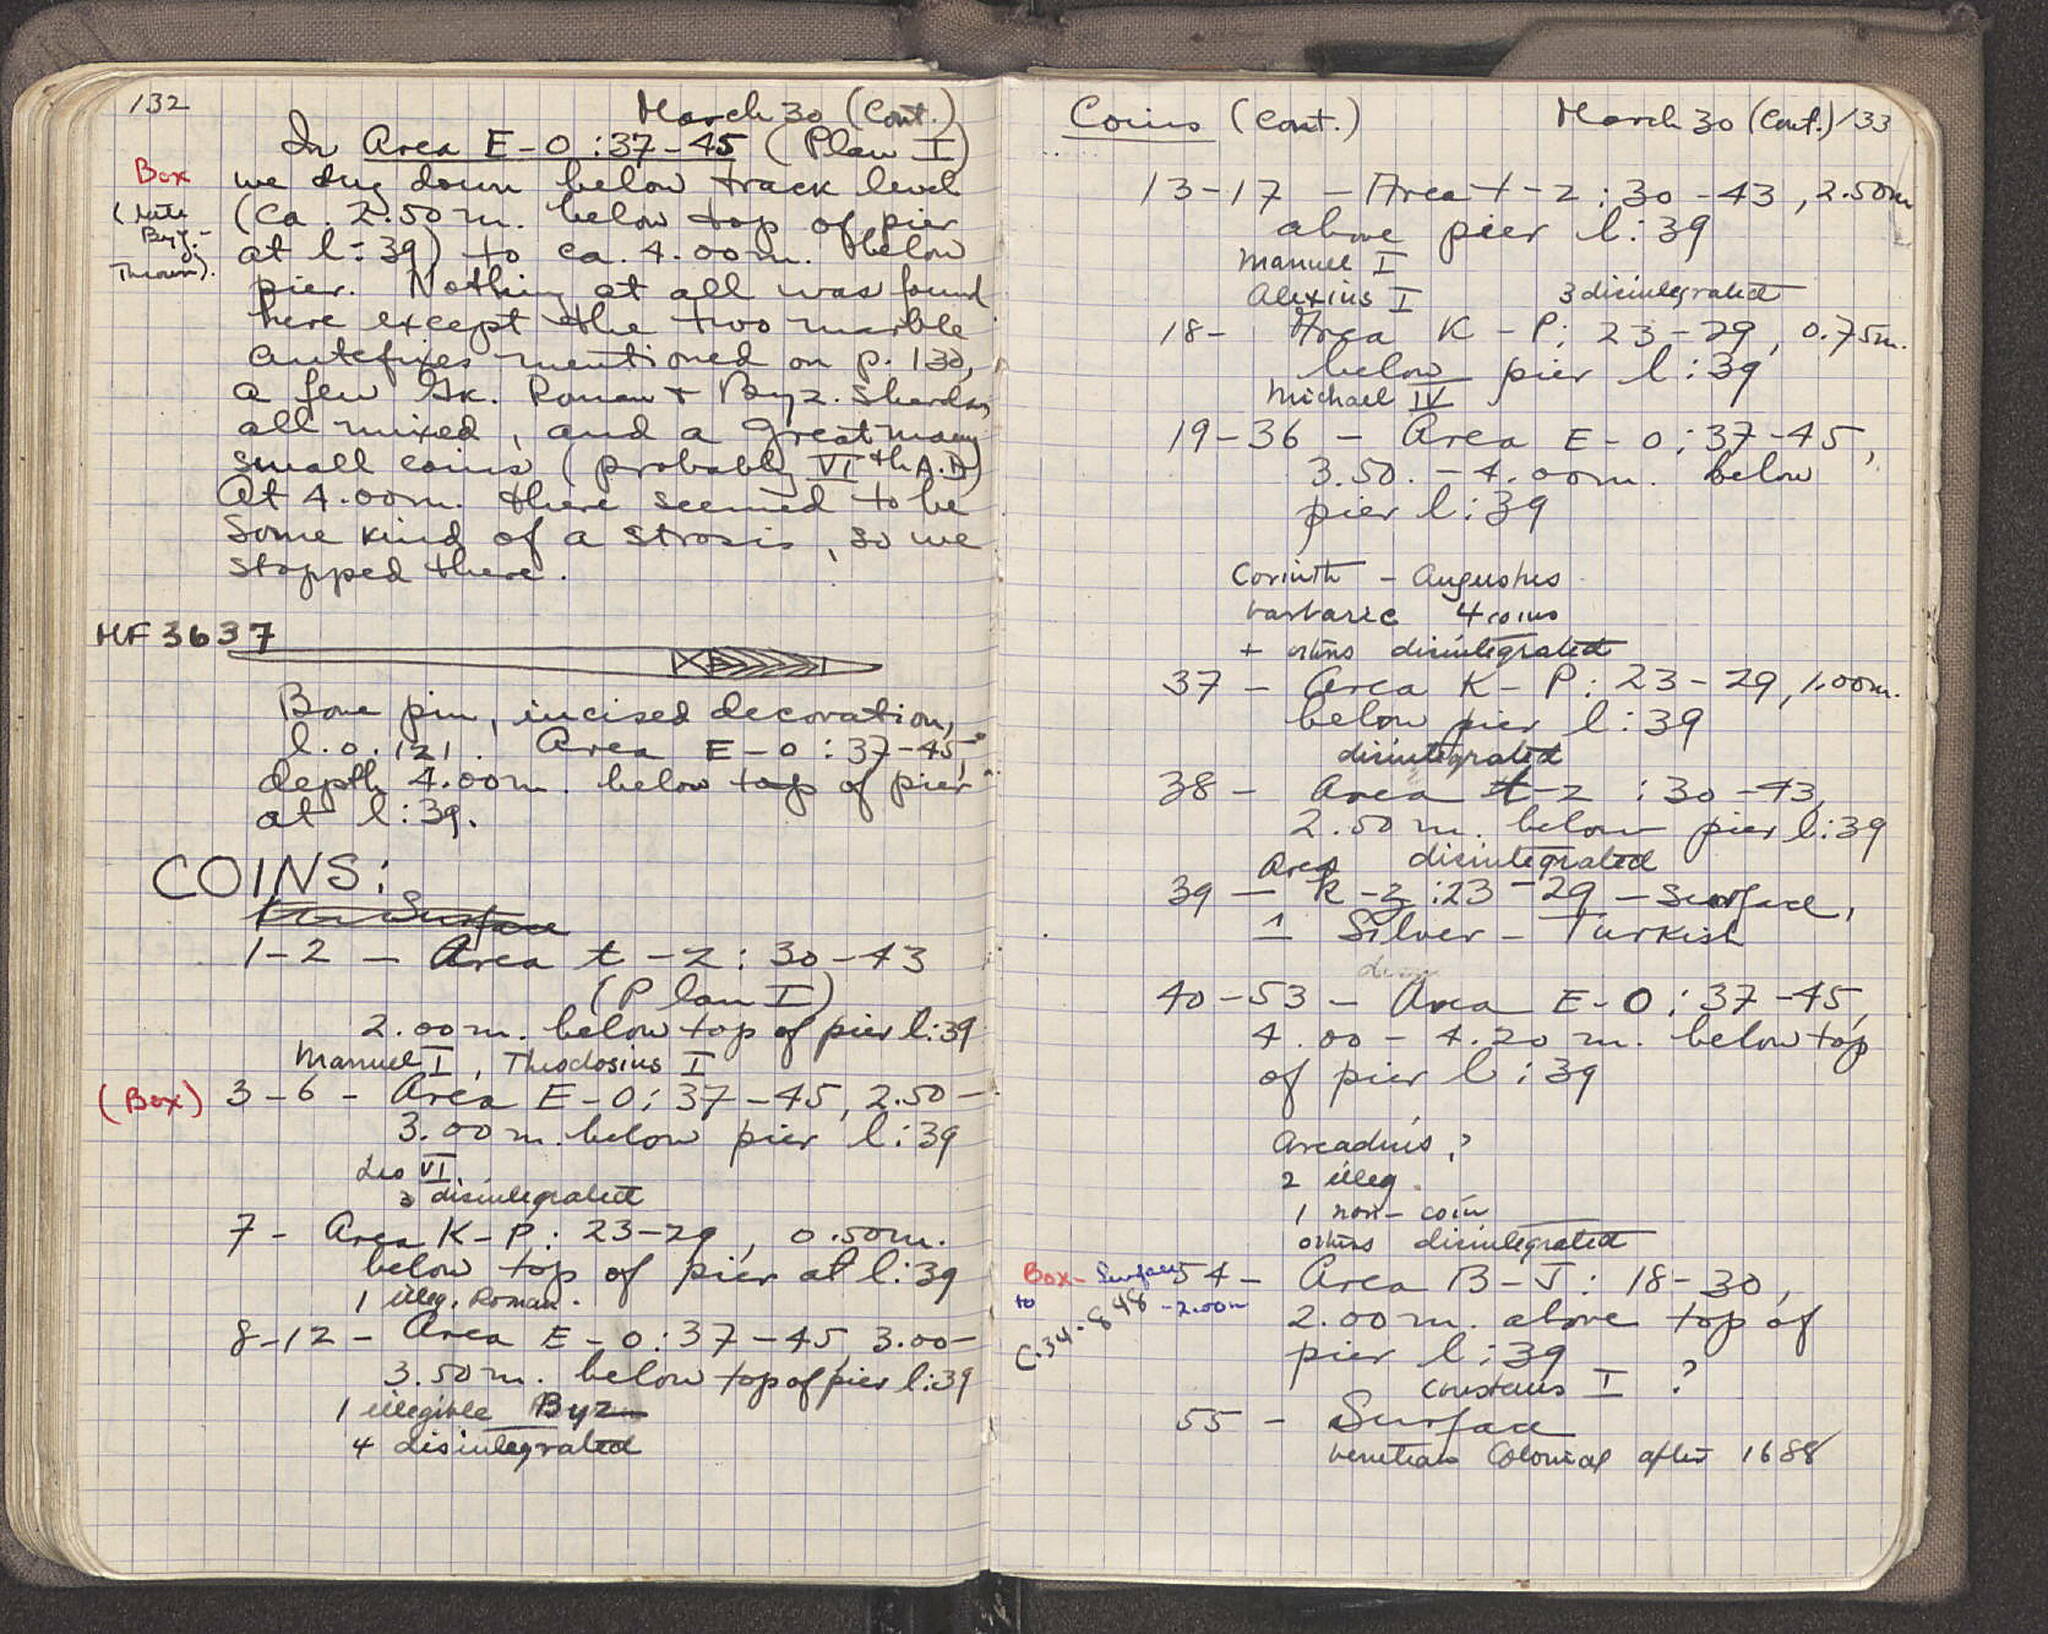 132
March 30 (Cont.)
In Area E-O:37-45 (Plan I)
Box
(Late
Byz.-
Thrown).
we dug down below track level
(ca. 2.50 m. below top of pier
at l:39) to ca. 4.00 m. below
pier. Nothing at all was found
here except the two marble
antefixes mentioned on p. 130,
a few Gk. Roman + Byz. sherds,
all mixed, and a great many
small coins (probably VI th A.D)
At 4.00 m. there seemed to be
some kind of a strosis, so we
stopped there.
MF 3637
Bone pin, incised decoration,
l. 0.121. Area E-O:37-45,
depth 4.00 m. below top of pier
at l:39.
COINS:
1-2 - Area t-z: 30-43
(Plan I)
2.00 m. below top of pier l:39
Manuel I, Theodosius I
(Box)
3-6 - Area E-O: 37-45, 2.50-
3.00 m. below pier l:39
Leo VI
3 disintegrated
7 - Area K-P: 23-29, 0.50 m.
below top of pier at l:39
1 illeg. Roman.
8-12 - Area E-O: 37-45, 3.00-
3.50 m. below top of pier l:39
1 illegible Byz
4 disintegrated
Coins (Cont.)
March 30 (Cont.) 133
13-17 - Area t-z: 30-43, 2.50m
above pier l:39
Manuel I
Alexius I 3 disintegrated
18- Area K-P: 23-29, 0.75m.
below pier l:39
Michael IV
19-36 - Area E-O: 37-45,
3.50.-4.00m. below
pier l:39
Corinth - Augustus
barbaric 4 coins
+ others disintegrated
37 - Area K-P: 23-29, 1.00m.
below pier l:39
disintegrated
38 - Area t-z: 30-43,
2.50 m. below pier l:39
disintegrated
Area
39 - K-z:23-29 - Surface,
1 Silver - Turkish
40-53 - Area E-O: 37-45,
4.00-4.20 m. below top
of pier l:39
Arcadius?
2 illeg.
1 non-coin
others disintegrated
Box - Surface
to -2.00m
C.34-848
54 - Area B-J: 18-30,
2.00 m. above top of
pier l:39
Constans I ?
55 - Surface
Venetian Colonial after 1688